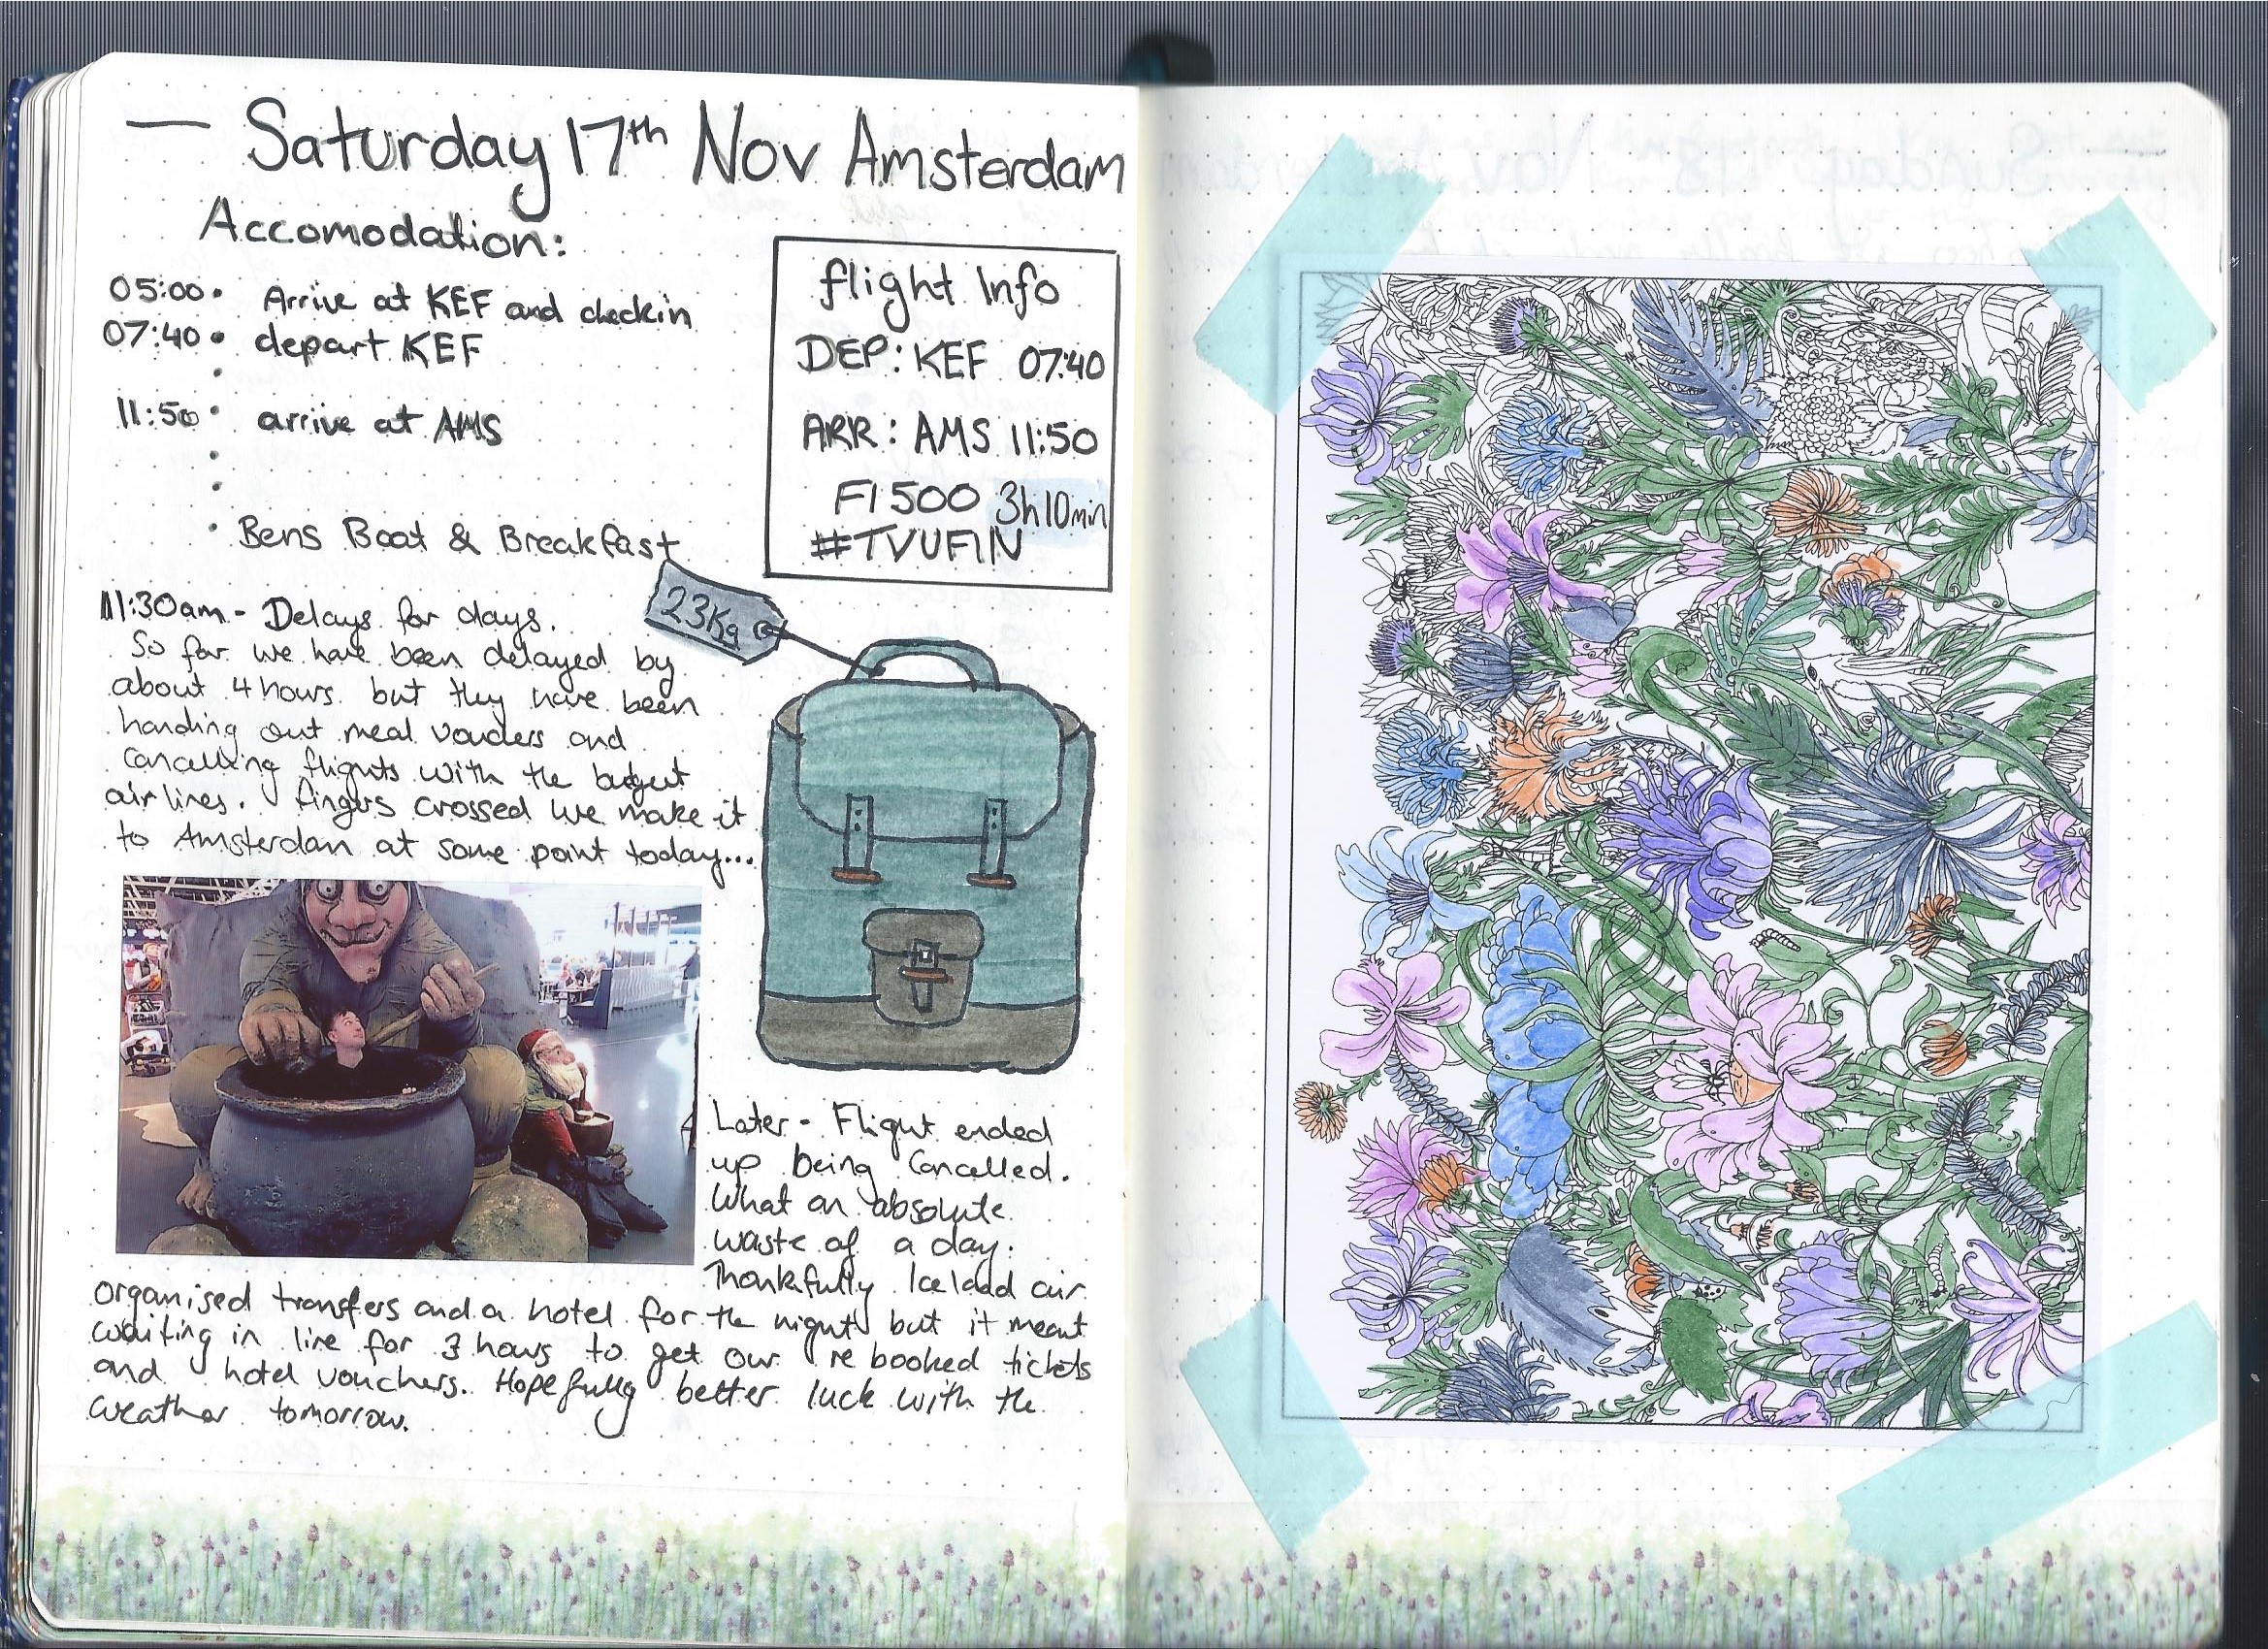 — Saturday 17th Nov Amsterdam
Accomodation:
05:00 • Arrive at KEF and checkin
07:40 • depart KEF
11:50 • arrive at AMS
• Bens Boat & Breakfast
flight Info
DEP: KEF 07:40
ARR: AMS 11:50
FI 500 3h10min
#TVUFIN
23Kg
11:30am - Delays for days.
So far we have been delayed by
about 4 hours but they have been
handing out meal vouchers and
cancelling flights with the budget
airlines. fingers crossed we make it
to Amsterdam at some point today...
Later - Flight ended
up being cancelled.
What an absolute
waste of a day.
Thankfully Iceland air
organised transfers and a hotel for the night but it meant
waiting in line for 3 hours to get our re booked tickets
and hotel vouchers. Hopefully better luck with the
weather tomorrow.